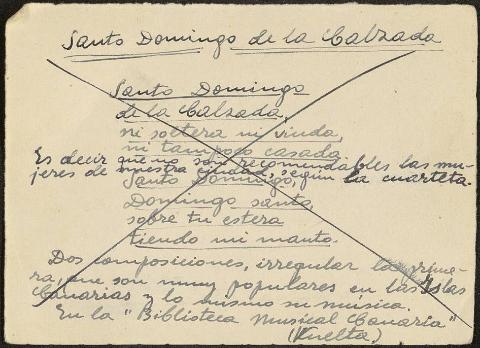 Santo Domingo de la Calzada
Santo Domingo
de la Calzada,
ni soltera ni viuda,
ni tampoco casada
Es decir que no son recomendables las mu-
jeres de nuestra ciudad, según la cuarteta.
Santo Domingo,
Domingo santo,
sobre tu estera
tiendo mi manto.
Dos composiciones, irregular la prime-
ra, que son muy populares en las Islas
Canarias y lo mismo su música.
En la "Biblioteca Musical Canaria"
(Vuelta)